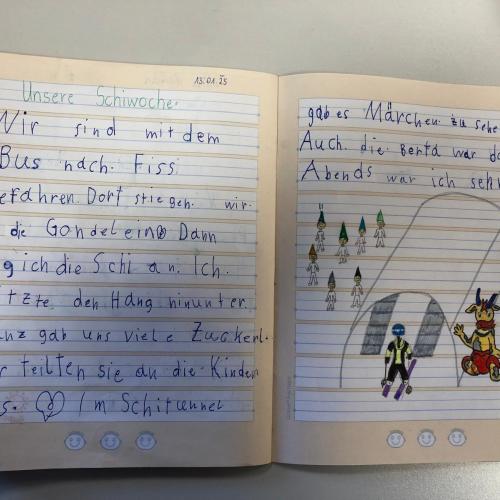 13.01.25
Unsere Schiwoche.
Wir sind mit dem
Bus nach Fiss
gefahren. Dort stiegen wir
die Gondel ein. Dann
ich die Schi an. Ich
den Hang hinunter.
gab uns viele Zuckerl.
teilten sie an die Kinder
Im Schitunnel
gab es Märchen zu sehen
Auch die Berta war da
Abends war ich sehr